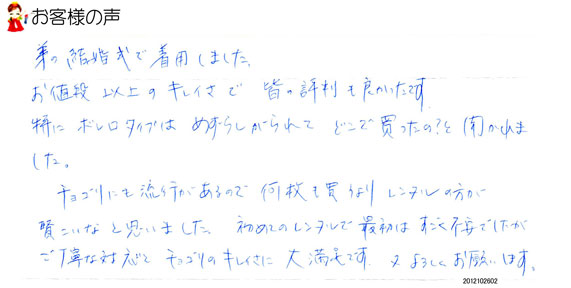 お客様の声
弟の結婚式で着用しました。
お値段以上のキレイさで 皆の評判も良かったです
特にボレロタイプは めずらしがられて どこで買ったの?と聞かれま
した。
チョゴリにも流行があるので 何枚も買うより レンタルの方が
賢こいなと思いました。 初めてのレンタルで最初はすごく不安でしたが
ご丁寧な対応と チョゴリのキレイさに 大満足です。 又よろしくお願いします。
2012102602